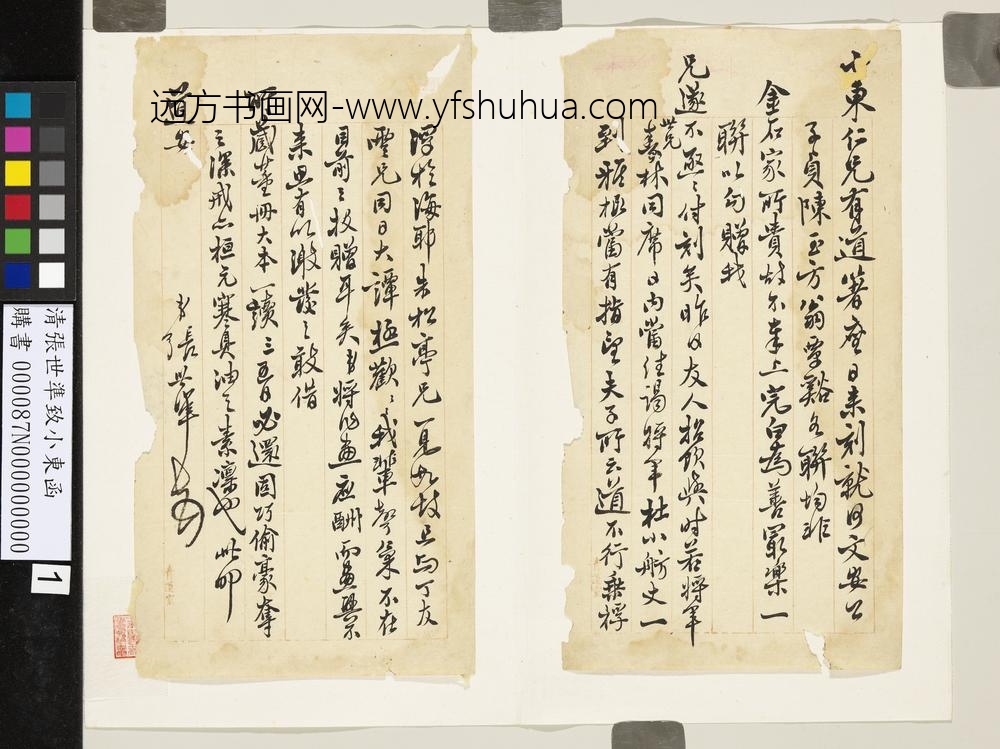 小東仁兄有道著席日来刻就何文安公
子貞陳玉方翁學谿各聯均非
金石家所貴故不奉上完白為善最樂一
聯以句贈我
兄遂不亟亟付刻矣昨日友人招飲與時若將軍
春林同席日內當往謁將軍杜小舫丈一
到雅極當有指望夫子所云道不行乘桴
浮於海耶朱松亭兄一見如故且与丁友
雲兄同日大譚極歡我輩聲氣不在
目前之投贈耳矣弟將以畫應酬而畫興不
来思有以激發之敢借
所藏董冊大本一讀三五日必還因巧偷豪奪
之深戒亦桓元寒具油之素凛也此叩
著安
弟張世準
远方书画网-www.yfshuhua.com
清張世準致小東函
購書 0000087N000000000
1